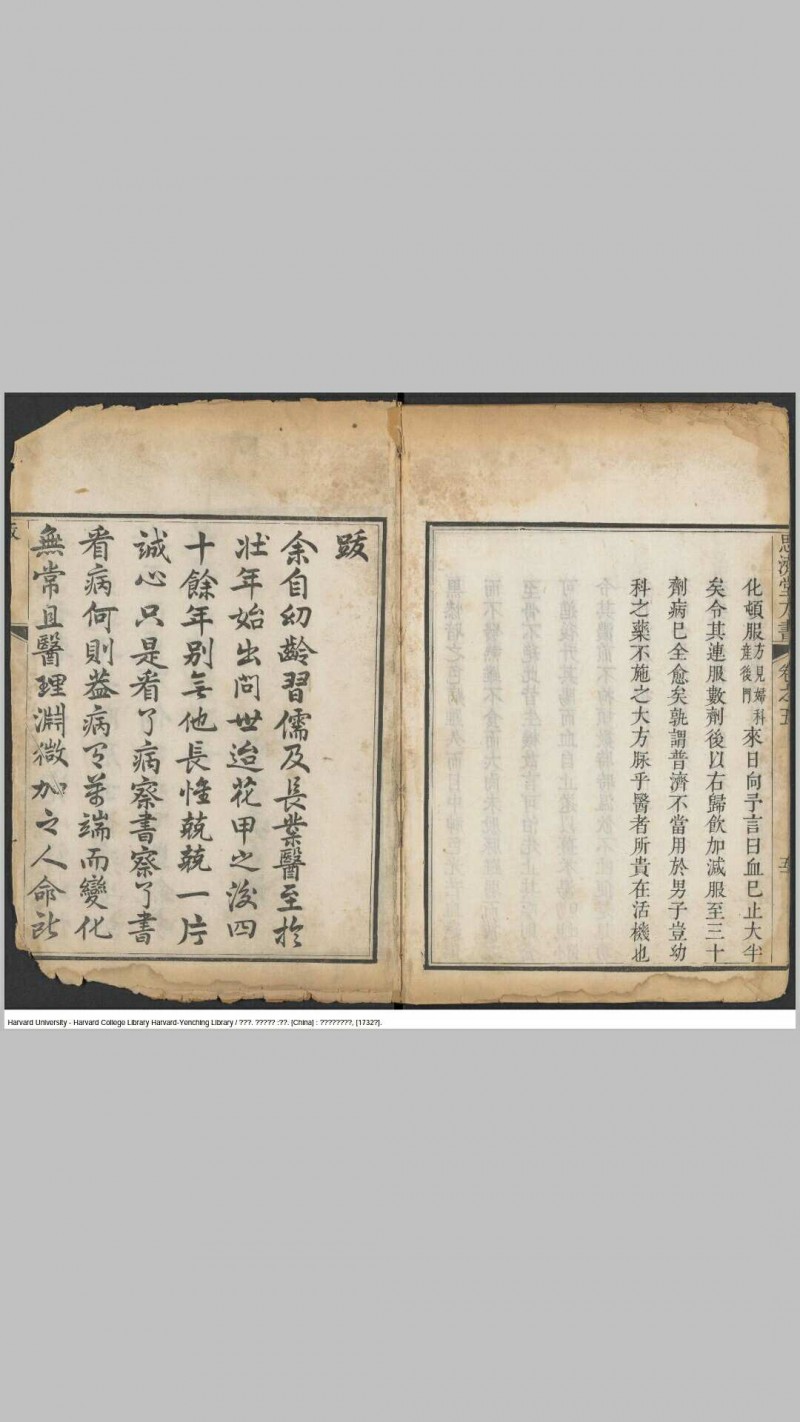 思濟堂方書
卷之五
化頓服方見婦科產後門來日向予言曰血已止大半
矣令其連服數劑後以右歸飲加減服至三十
劑病已全愈矣孰謂普濟不當用於男子豈幼
科之藥不施之大方脉乎醫者所貴在活機也
跋
余自幼齡習儒及長業醫至於
壯年始出問世迨花甲之後四
十餘年別無他長惟兢兢一片
誠心只是看了病察書察了書
看病何則葢病有萬端而變化
無常且醫理淵微加之人命所
Harvard University - Harvard College Library Harvard-Yenching Library / ???. ????? :??. [China] : ????????, [1732?].